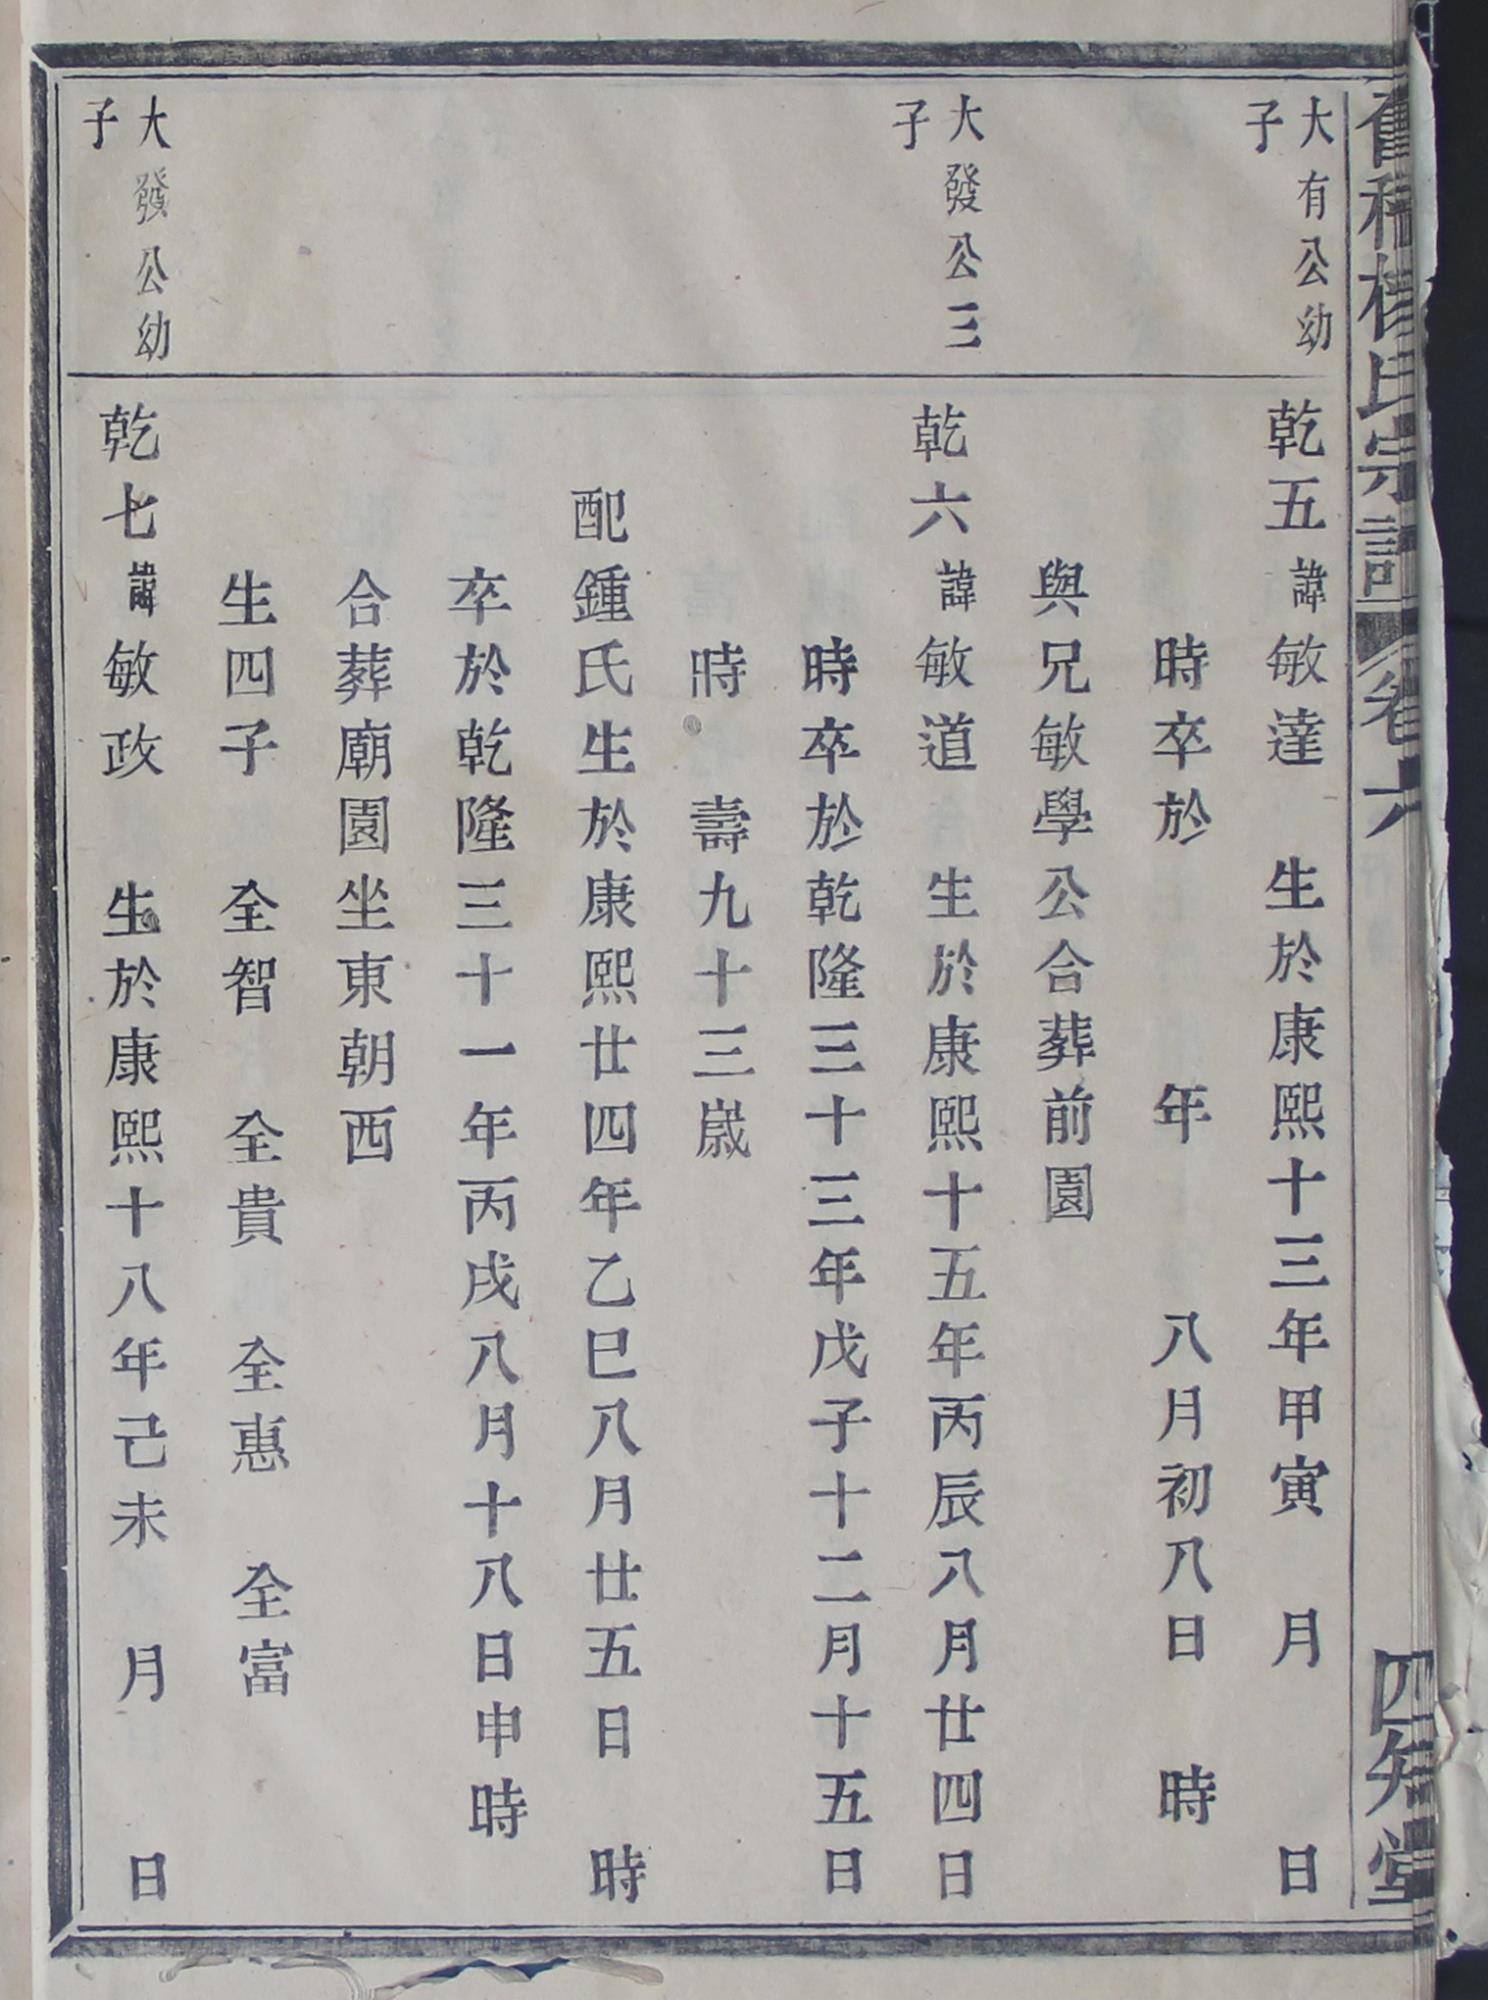 氏宗譜 卷六 四知堂
大有公幼
子
乾五諱敏達 生於康熙十三年甲寅 月 日
時卒於 年 八月初八日 時
與兄敏學公合葬前園
大發公三
子
乾六諱敏道 生於康熙十五年丙辰八月廿四日
時卒於乾隆三十三年戊子十二月十五日
時 壽九十三歲
配鍾氏生於康熙廿四年乙巳八月廿五日 時
卒於乾隆三十一年丙戌八月十八日申時
合葬廟園坐東朝西
生四子 全智 全貴 全惠 全富
大發公幼
子
乾七諱敏政 生於康熙十八年己未 月 日